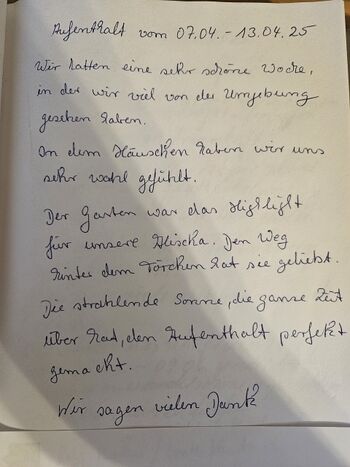 Aufenthalt vom 07.04. - 13.04.25
Wir hatten eine sehr schöne Woche,
in der wir viel von der Umgebung
gesehen haben.
In dem Häuschen haben wir uns
sehr wohl gefühlt.
Der Garten war das Highlight
für unsere Mischa. Den Weg
hinter dem Törchen hat sie geliebt.
Die strahlende Sonne, die ganze Zeit
über hat, den Aufenthalt perfekt
gemacht.
Wir sagen vielen Dank